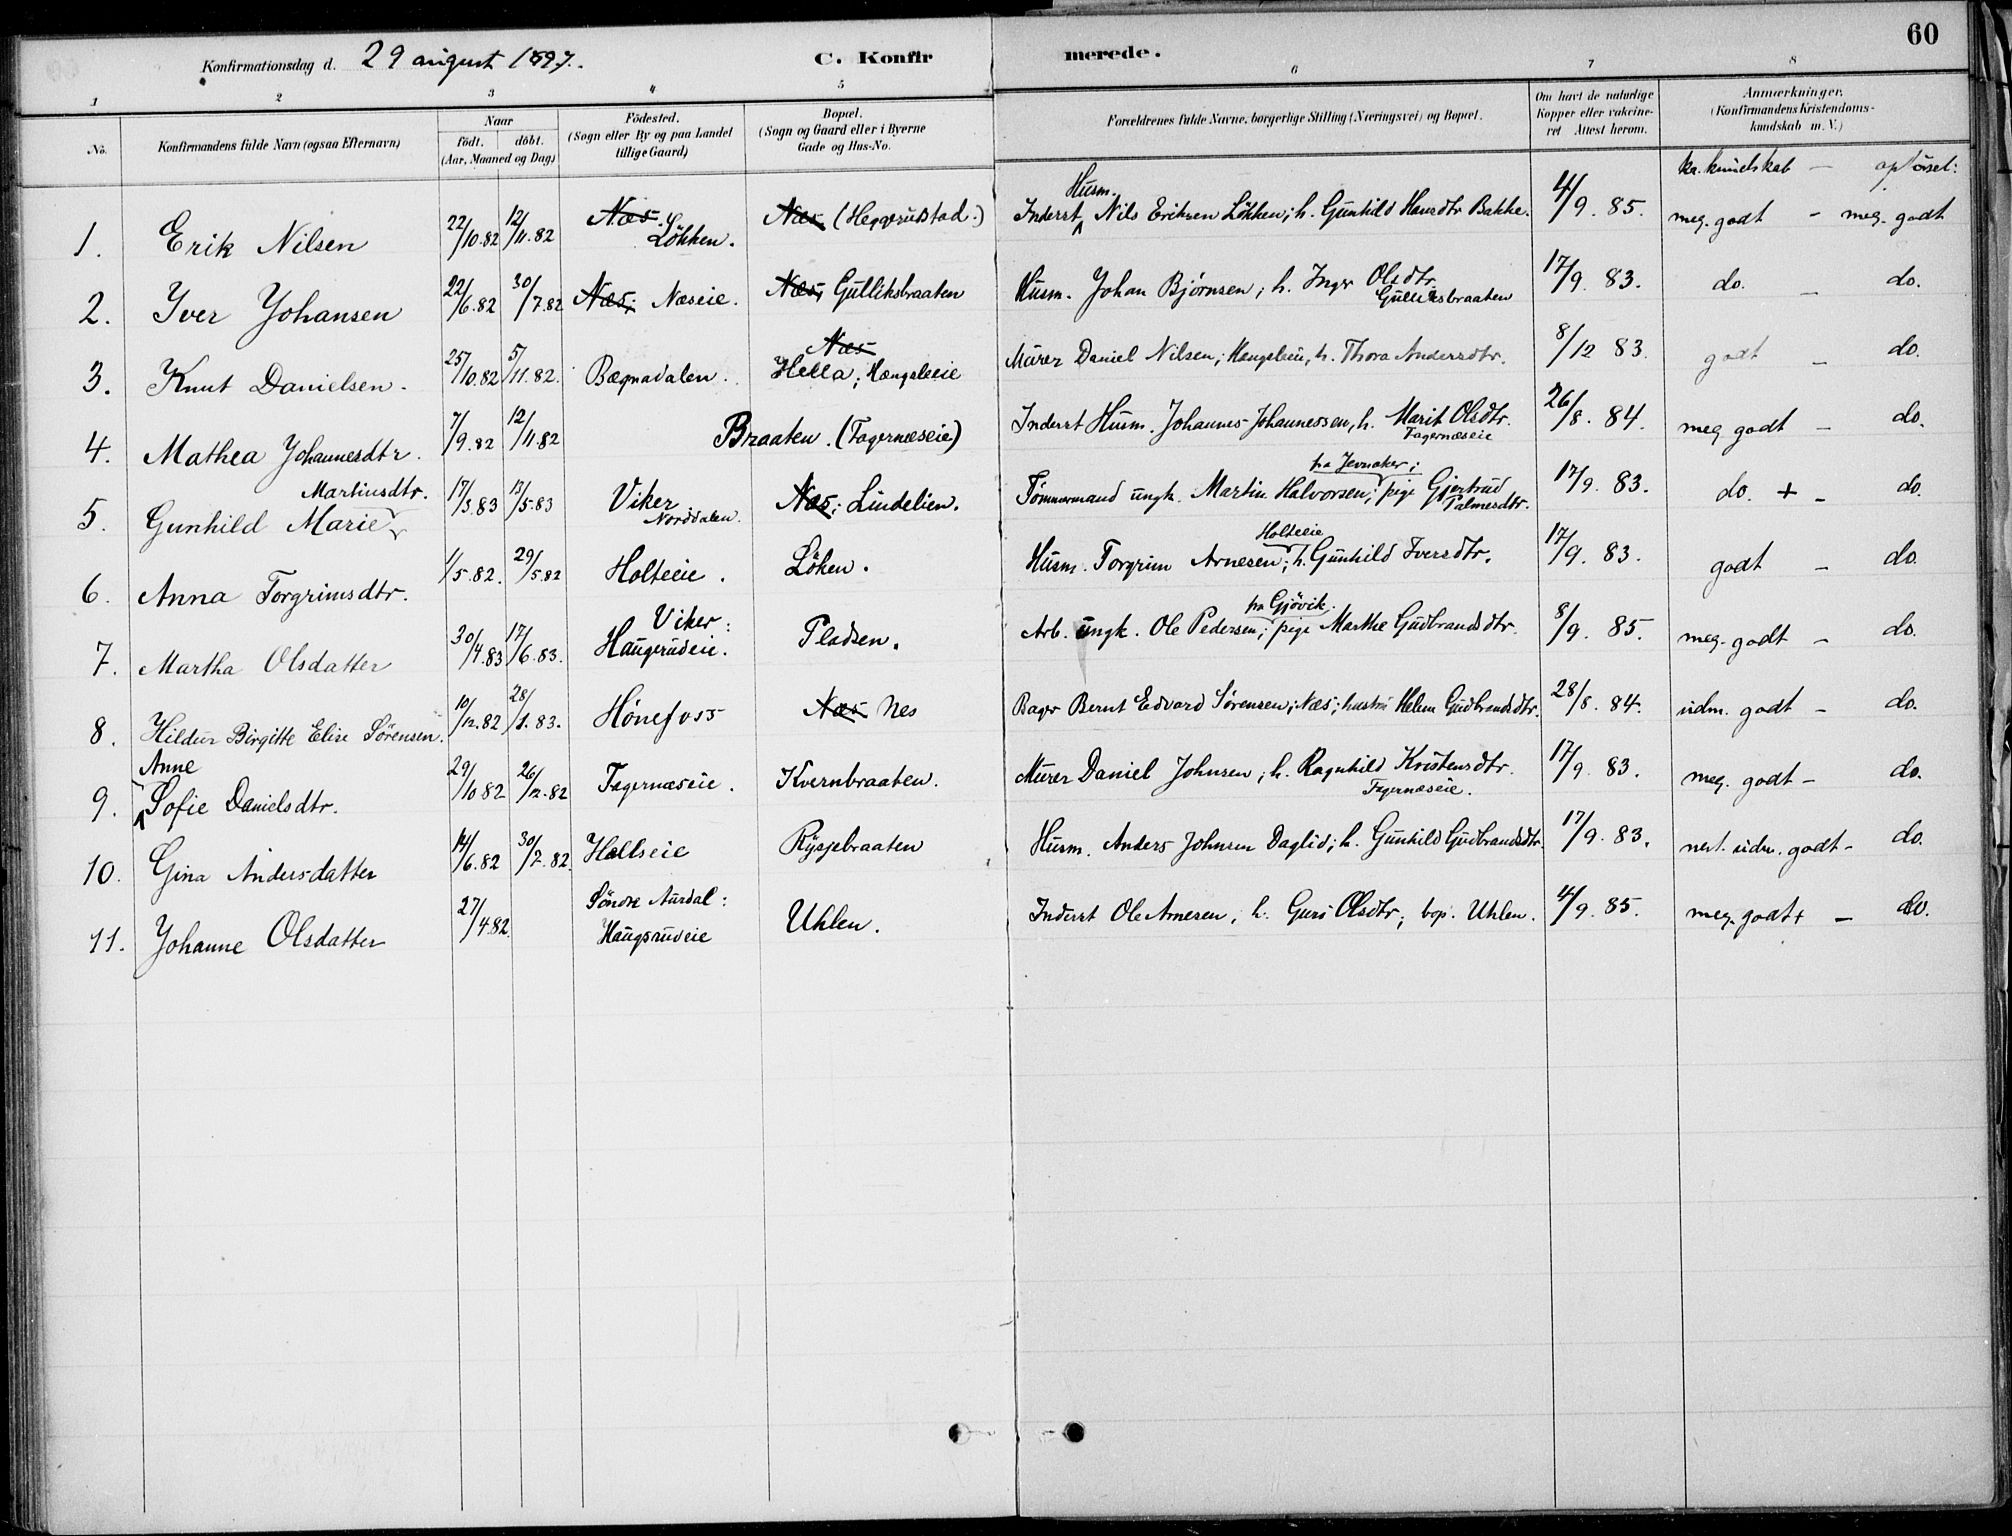 60
Konfirmationsdag d. 29 august 1897.
C. Konfirmerede.
1 2 3 4 5 6 7 8
No.
Konfirmandens fulde Navn (ogsaa Efternavn)
Naar
födt. döbt.
(Aar, Maaned og Dag)
Födested.
(Sogn eller By og paa Landet
tillige Gaard)
Bopæl.
(Sogn og Gaard eller i Byerne
Gade og Hus-No.
Forældrenes fulde Navne, borgerlige Stilling (Næringsvei) og Bopæl.
Om havt de naturlige
Kopper eller vakcine-
ret Attest herom.
Anmærkninger.
(Konfirmandens Kristendoms-
kundskab m. V.)
kr. kundskab —
1. Erik Nilsen 22/10.82 12/11.82 Næs. Løkken. Næs. (Heggerudstad.) Inderst Husm. Nils Eriksen Løkken; h. Gunhild Hansdtr Bakke. 4/9. 85. meg. godt - meg. godt
2. Iver Johansen 22/6.82 30/7.82 Næs; Næseie. Næs; Gulliksbraaten Husm. Johan Bjørnsen; h. Inger Olsdtr. Gulliksbraaten 17/9. 83. do. - do.
3. Knut Danielsen. 25/10.82 5/11.82. Bægnadalen. Næs Hella; Hængsleeie Murer Daniel Nilsen; h. Thora Andersdtr. 8/12 83. godt - do.
4. Mathea Johannesdtr. 7/9.82 12/11.82 Braaten. (Fagernæseie) Inderst Husm. Johannes Johannessen, h. Marit Olsdtr. Fagernæseie 26/8. 84. meg godt - do.
5. Gunhild Marie Martinsdtr. 17/3.83 13/5.83 Viker Norddalen. Næs; Lindelien. Tömmermand ungk. Martin Halvorsen, fra Jevnaker; pige Gjertrud Palmesdtr. 17/9. 83. do. + - do.
6. Anna Torgrimsdtr. 1/5.82. 29/5.82 Holteeie. Löken. Husm. Torgrim Arnesen; Holteeie h. Gunhild Iversdtr. 17/9. 83. godt - do.
7. Martha Olsdatter 30/4.83 17/6.83. Viker: Haugerudeie. Pladsen. Arb. ungk. Ole Pedersen; fra Gjövik. pige Marthe Gudbrandsdtr. 8/9. 85. meg. godt - do.
8. Hildur Birgitte Elise Sörensen. 10/12.82 28/1.83. Hönefoss Næs Nes Bager Bernt Edvard Sørensen; Næs; hustru Helene Gudbrandsdtr. 28/8. 84. udm. godt - do.
9. Anne Sofie Danielsdtr. 29/10 82 26/12.82 Fagernæseie. Kvernbraaten. Murer Daniel Johnsen; h. Ragnhild Kristensdtr. Fagernæseie. 17/9. 83. meg. godt - do.
10. Gina Andersdatter 14/6.82 30/7.82. Hallseie Rysjebraaten Husm. Anders Johnsen Daglid; h. Gunhild Gudbrandsdtr. 17/9. 83. nest. udm. godt - do.
11. Johanne Olsdatter 27/4.82. Söndre Aurdal: Haugsrudeie Uhlen. Inderst Ole Arnesen, h. Guri Olsdtr; bop. Uhlen. 4/9. 85. meg. godt + - do.